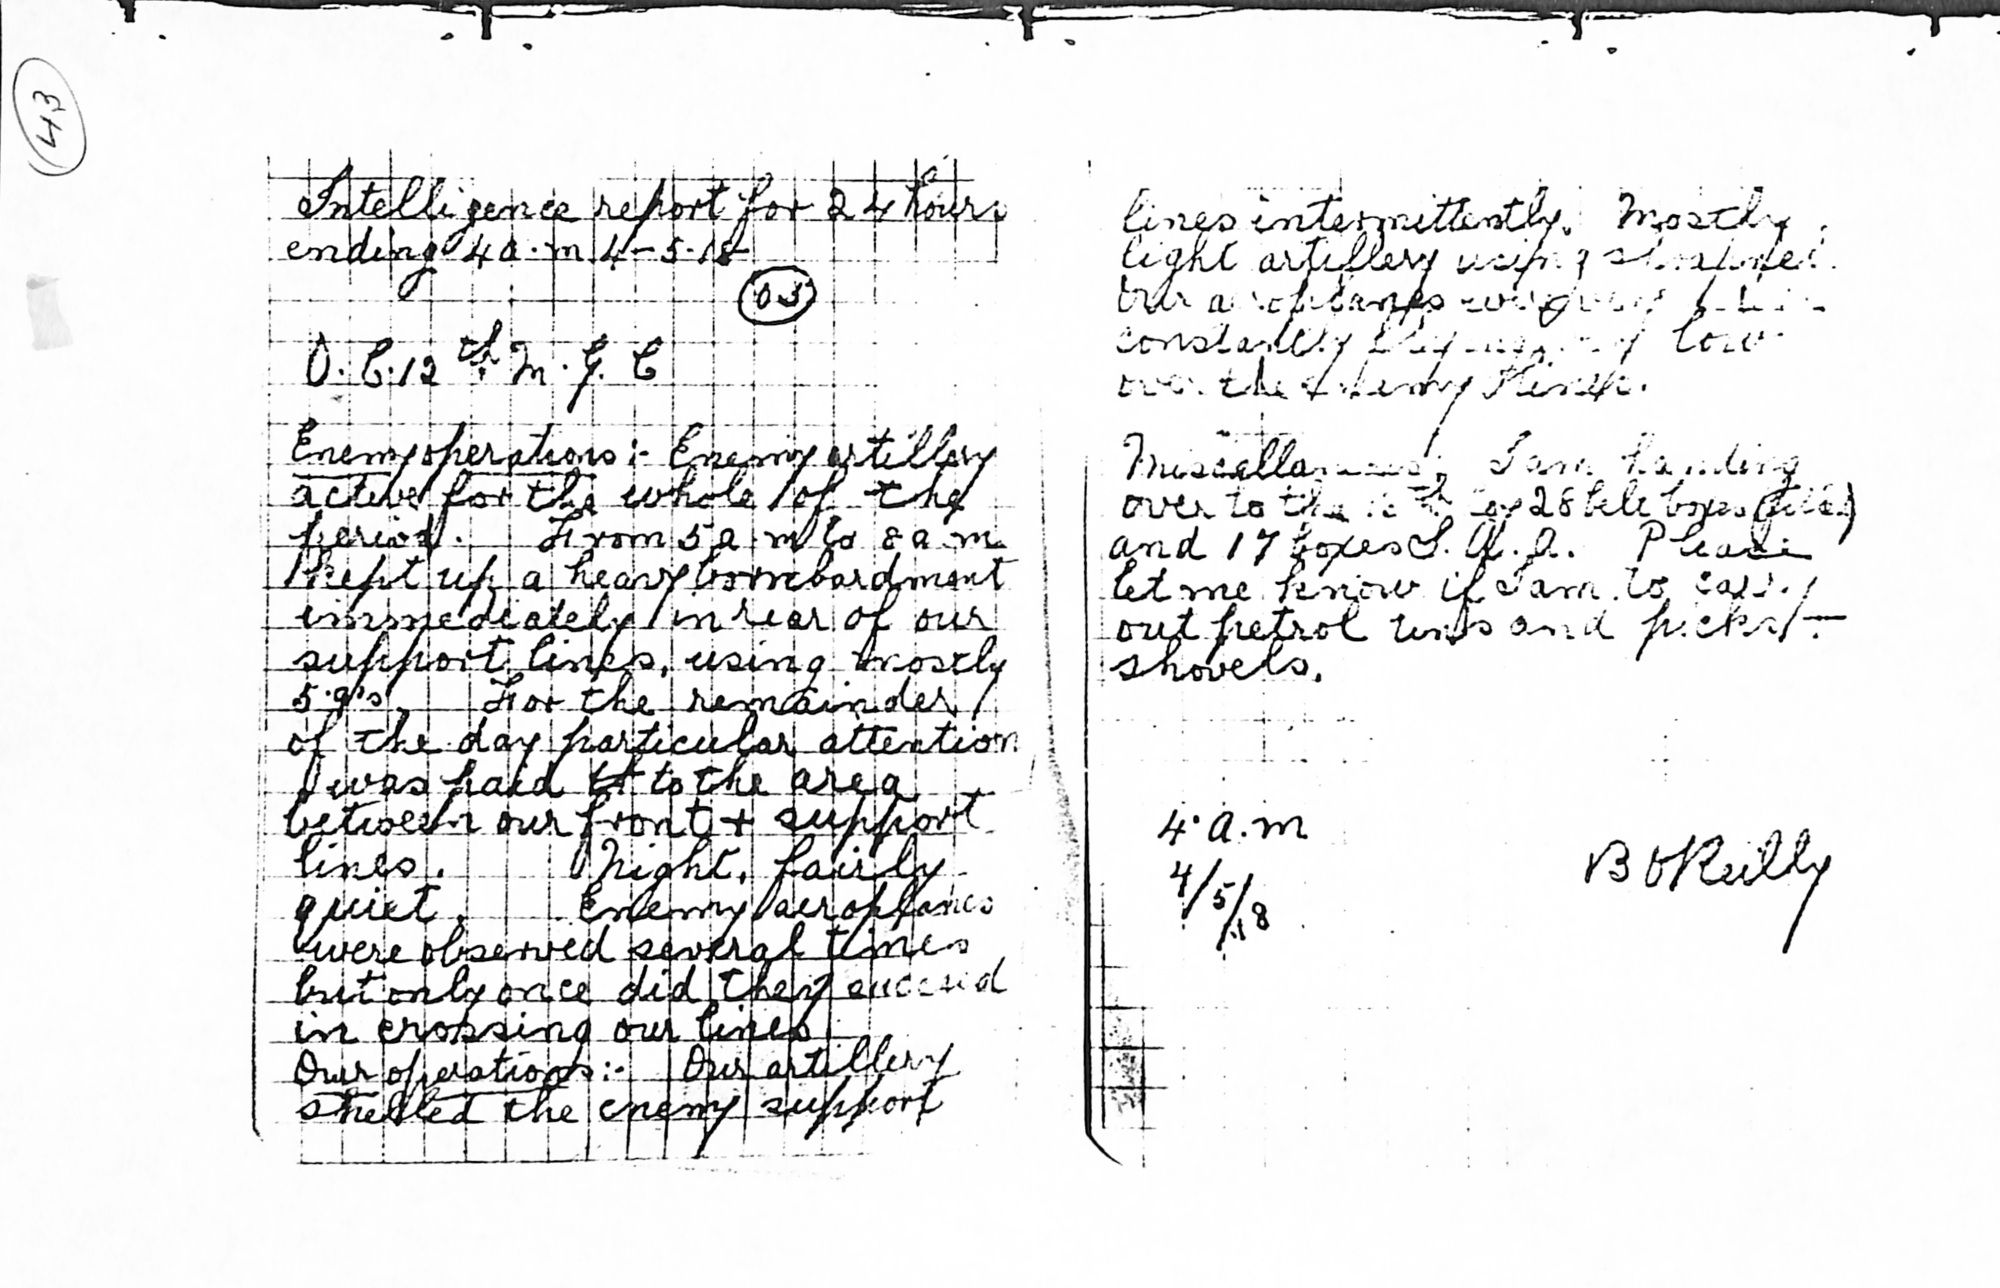 43
Intelligence report for 24 hours
ending 4 a.m 4-5-18
03
O.C. 12th M.G.C
Enemy operations:- Enemy artillery
active for the whole of the
period. From 5 a.m to 8 a m
kept up a heavy bombardment
immediately in rear of our
support lines, using mostly
5.9's. For the remainder
of the day particular attention
was paid to the area
between our front + support
lines. Night, fairly
quiet. Enemy aeroplanes
were observed several times
but only once did they succeed
in crossing our lines
Our operations:- Our artillery
shelled the enemy support
lines intermittently. Mostly
light artillery using shrapnel.
Our aeroplanes were
constantly flying low
over the enemy lines.
Miscellaneous, I am handing
over to the Coy 28 belt boxes (filled)
and 17 boxes S.A.A. Please
let me know if I am to carry
out petrol tins and picks +
shovels.
4.a.m
4/5/18
B O'Reilly